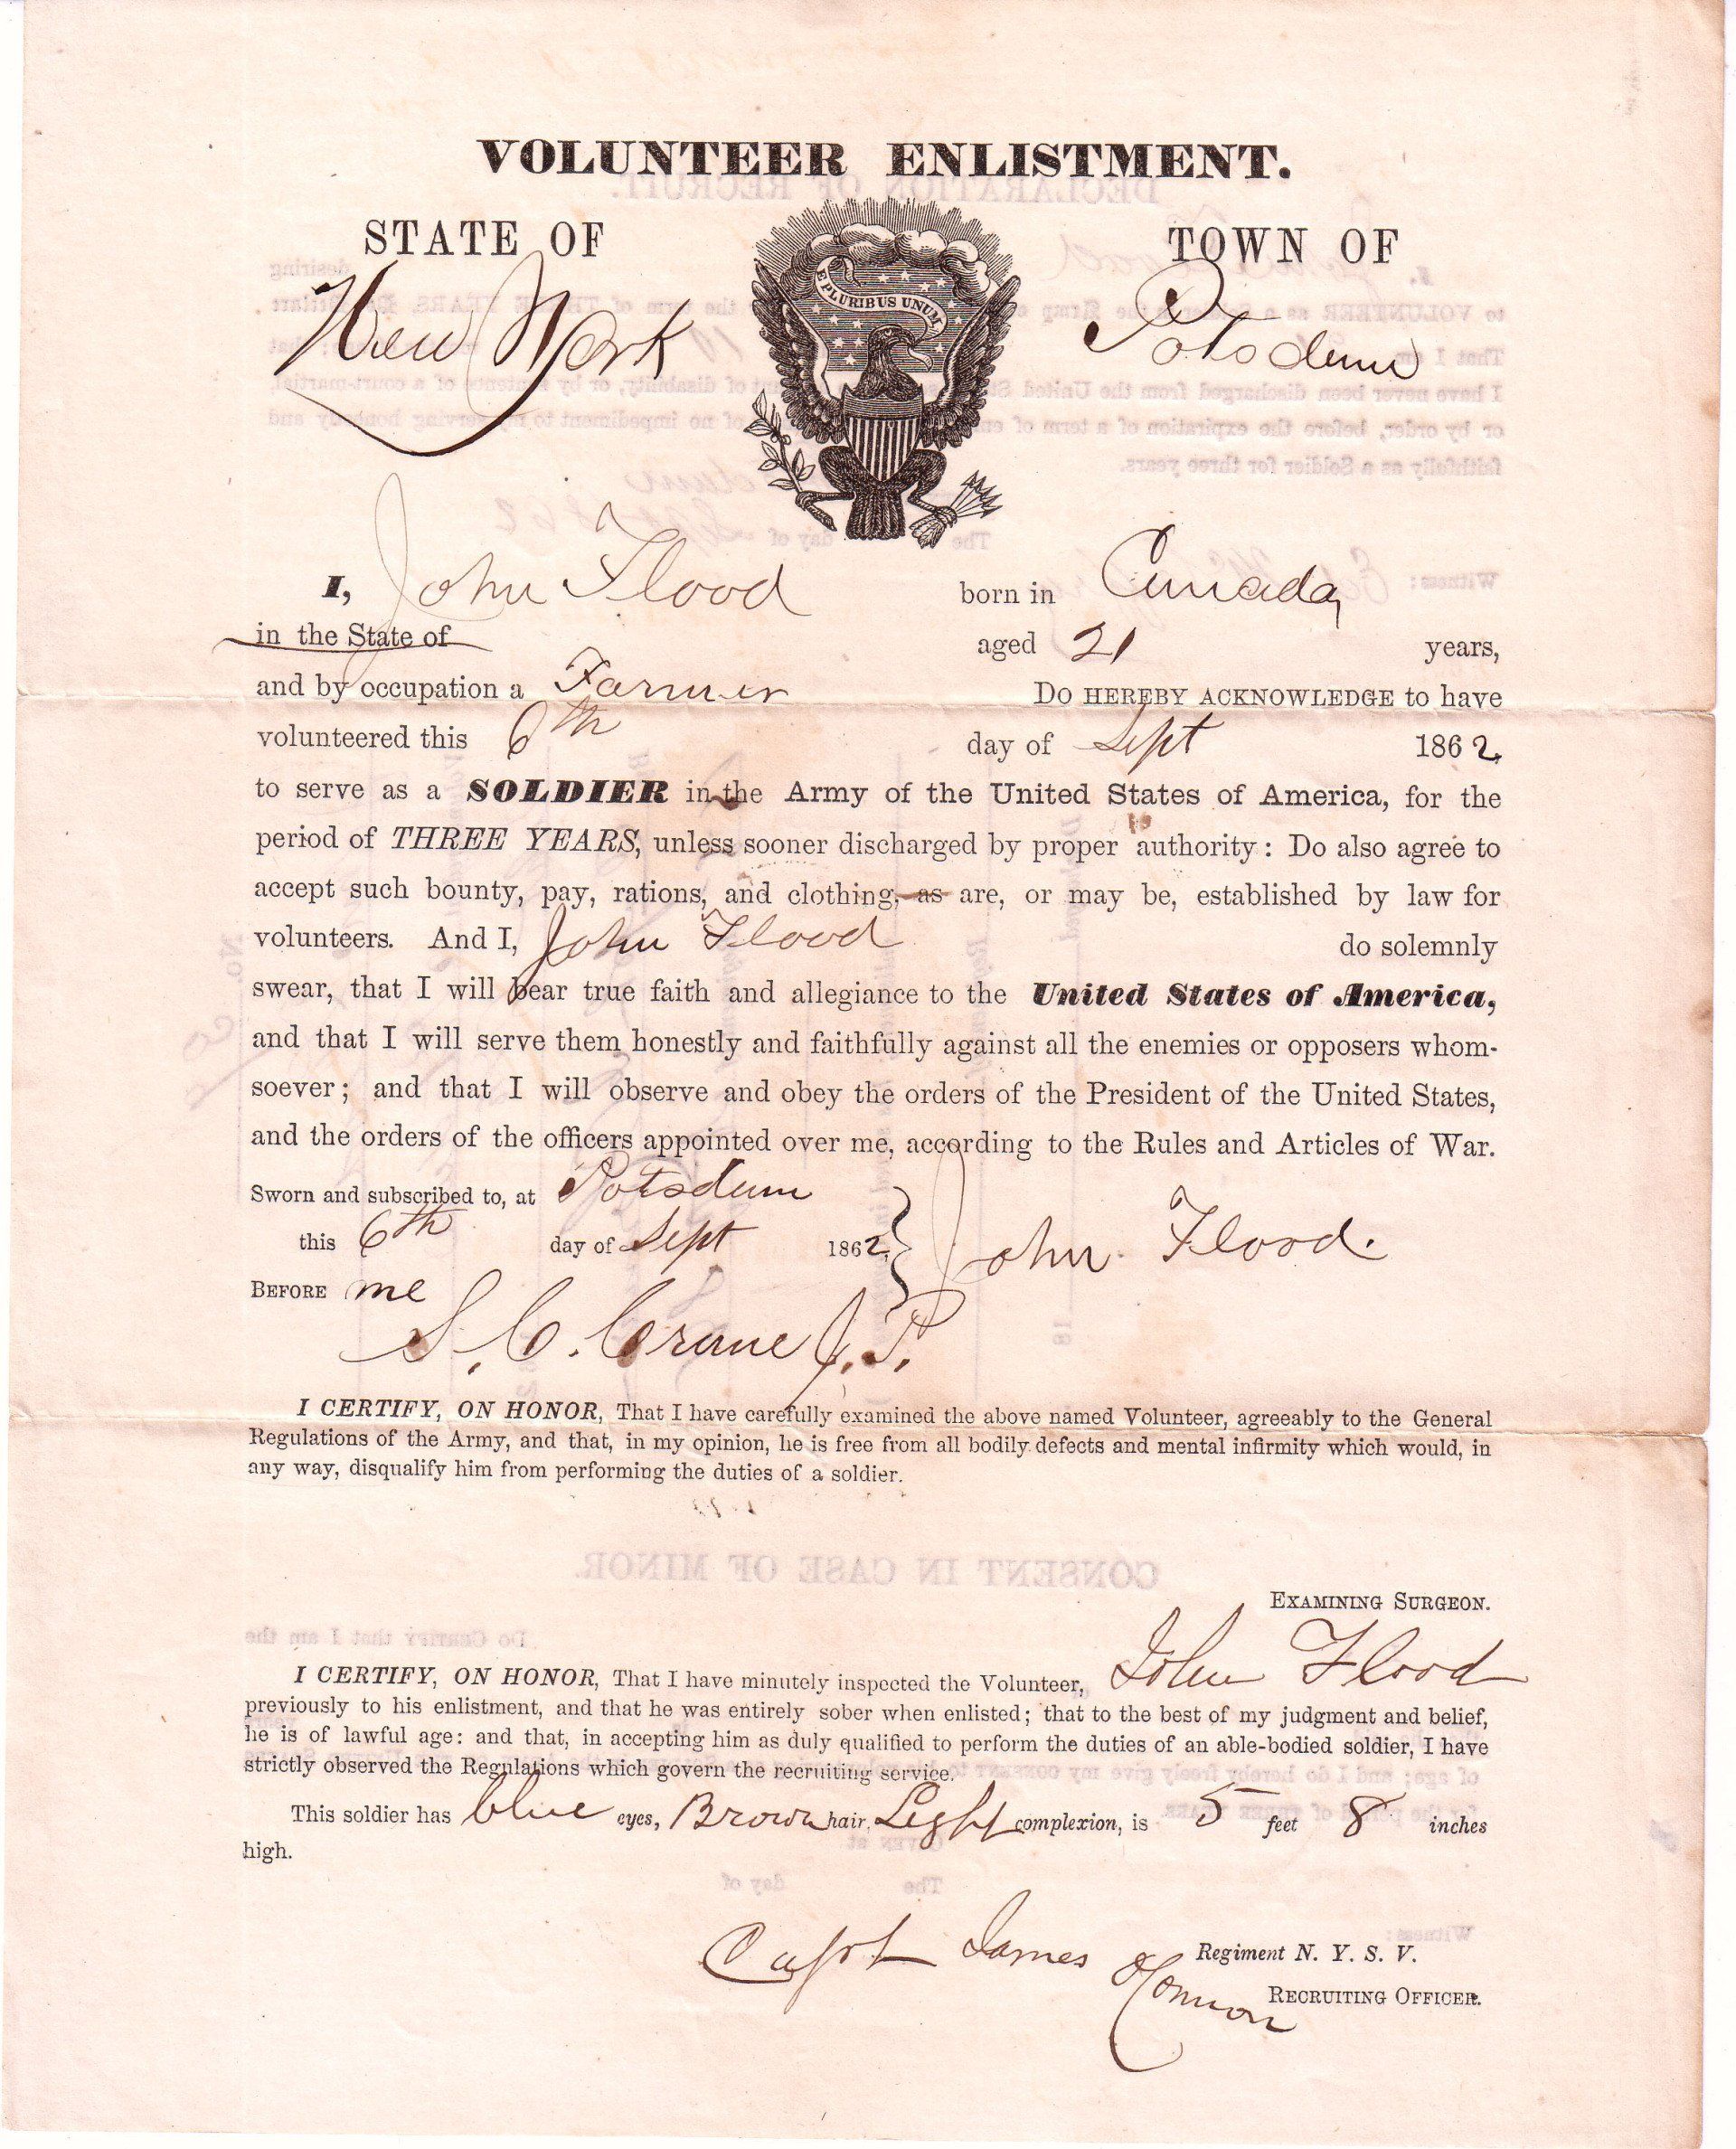 VOLUNTEER ENLISTMENT.
STATE OF
TOWN OF
New York
E PLURIBUS UNUM
Potsdam
I, John Flood born in Canada,
in the State of aged 21 years,
and by occupation a Farmer Do HEREBY ACKNOWLEDGE to have
volunteered this 6th day of Sept 1862
to serve as a SOLDIER in the Army of the United States of America, for the
period of THREE YEARS, unless sooner discharged by proper authority: Do also agree to
accept such bounty, pay, rations, and clothing, as are, or may be, established by law for
volunteers. And I, John Flood do solemnly
swear, that I will bear true faith and allegiance to the United States of America,
and that I will serve them honestly and faithfully against all the enemies or opposers whom-
soever; and that I will observe and obey the orders of the President of the United States,
and the orders of the officers appointed over me, according to the Rules and Articles of War.
Sworn and subscribed to, at Potsdam
this 6th day of Sept 1862, John Flood.
BEFORE me
S. C. Crane J. P.
I CERTIFY, ON HONOR, That I have carefully examined the above named Volunteer, agreeably to the General
Regulations of the Army, and that, in my opinion, he is free from all bodily defects and mental infirmity which would, in
any way, disqualify him from performing the duties of a soldier.
EXAMINING SURGEON.
I CERTIFY, ON HONOR, That I have minutely inspected the Volunteer, John Flood
previously to his enlistment, and that he was entirely sober when enlisted; that to the best of my judgment and belief,
he is of lawful age: and that, in accepting him as duly qualified to perform the duties of an able-bodied soldier, I have
strictly observed the Regulations which govern the recruiting service.
This soldier has blue eyes, Brown hair, Light complexion, is 5 feet 8 inches
high.
Capt James O'Connor Regiment N. Y. S. V.
RECRUITING OFFICER.